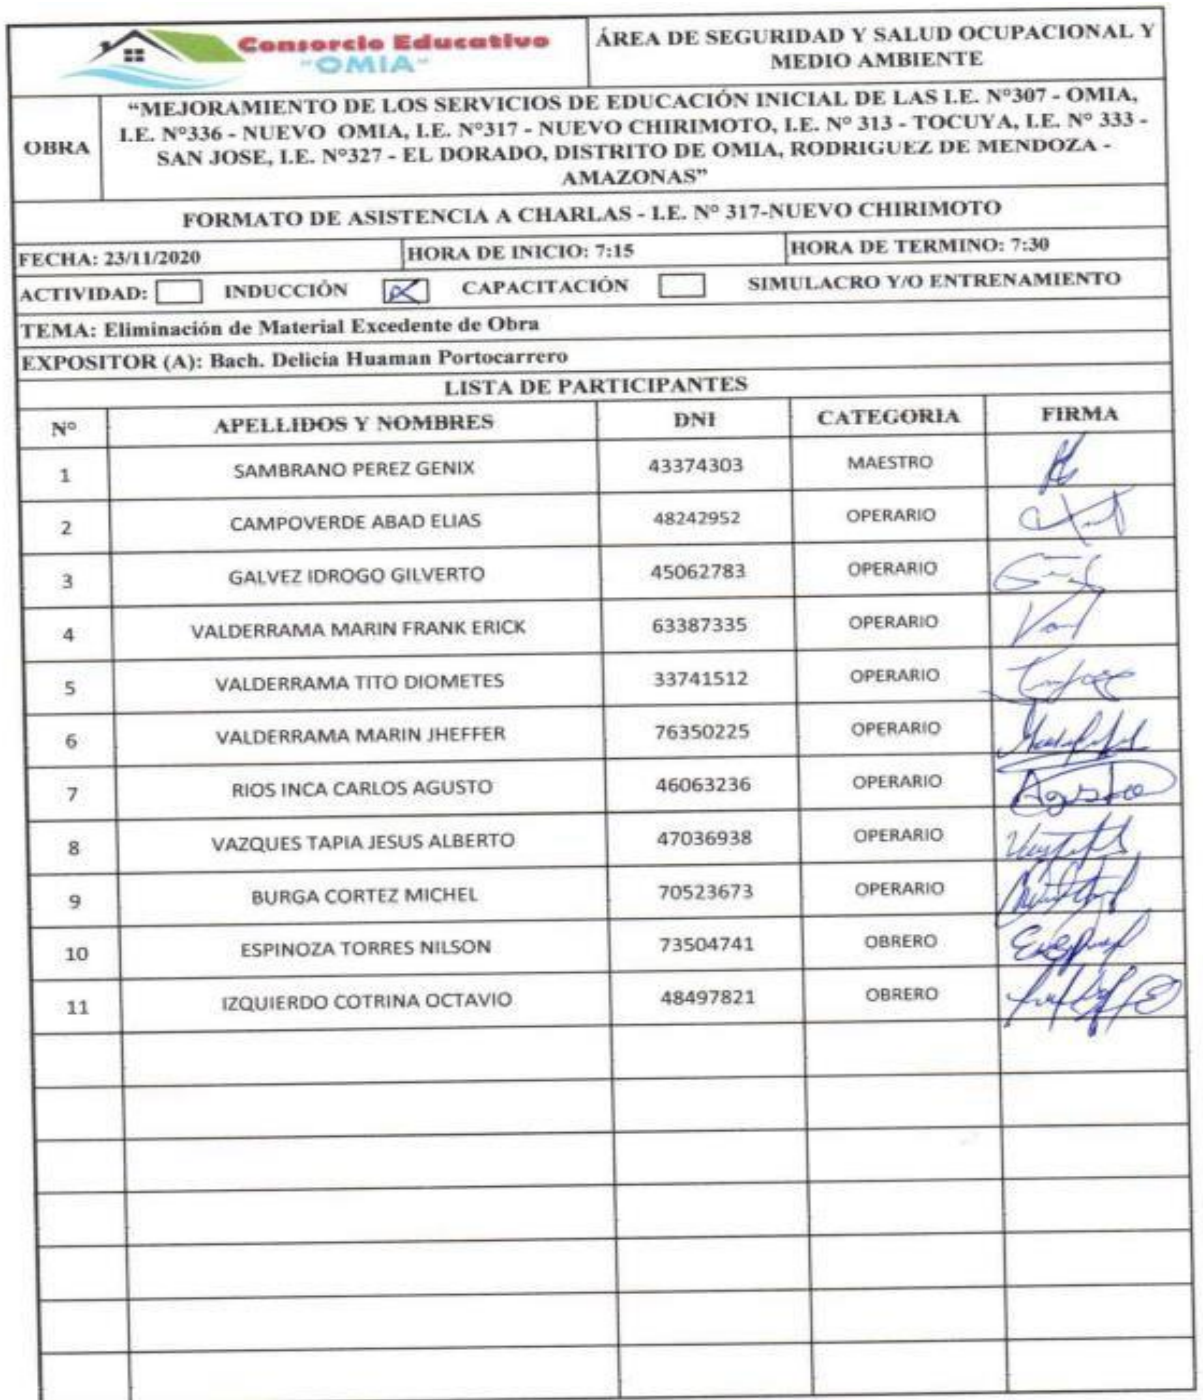 Consorcio Educativo
"OMIA"
ÁREA DE SEGURIDAD Y SALUD OCUPACIONAL Y
MEDIO AMBIENTE
OBRA
“MEJORAMIENTO DE LOS SERVICIOS DE EDUCACIÓN INICIAL DE LAS I.E. N°307 - OMIA,
I.E. N°336 - NUEVO OMIA, I.E. N°317 - NUEVO CHIRIMOTO, I.E. N° 313 - TOCUYA, I.E. N° 333 -
SAN JOSE, I.E. N°327 - EL DORADO, DISTRITO DE OMIA, RODRIGUEZ DE MENDOZA -
AMAZONAS”
FORMATO DE ASISTENCIA A CHARLAS - I.E. N° 317-NUEVO CHIRIMOTO
FECHA: 23/11/2020 HORA DE INICIO: 7:15 HORA DE TERMINO: 7:30
ACTIVIDAD: INDUCCIÓN CAPACITACIÓN SIMULACRO Y/O ENTRENAMIENTO
TEMA: Eliminación de Material Excedente de Obra
EXPOSITOR (A): Bach. Delicia Huaman Portocarrero
LISTA DE PARTICIPANTES
N° APELLIDOS Y NOMBRES DNI CATEGORIA FIRMA
1 SAMBRANO PEREZ GENIX 43374303 MAESTRO
2 CAMPOVERDE ABAD ELIAS 48242952 OPERARIO
3 GALVEZ IDROGO GILVERTO 45062783 OPERARIO
4 VALDERRAMA MARIN FRANK ERICK 63387335 OPERARIO
5 VALDERRAMA TITO DIOMETES 33741512 OPERARIO
6 VALDERRAMA MARIN JHEFFER 76350225 OPERARIO
7 RIOS INCA CARLOS AGUSTO 46063236 OPERARIO Agusto
8 VAZQUES TAPIA JESUS ALBERTO 47036938 OPERARIO
9 BURGA CORTEZ MICHEL 70523673 OPERARIO
10 ESPINOZA TORRES NILSON 73504741 OBRERO
11 IZQUIERDO COTRINA OCTAVIO 48497821 OBRERO